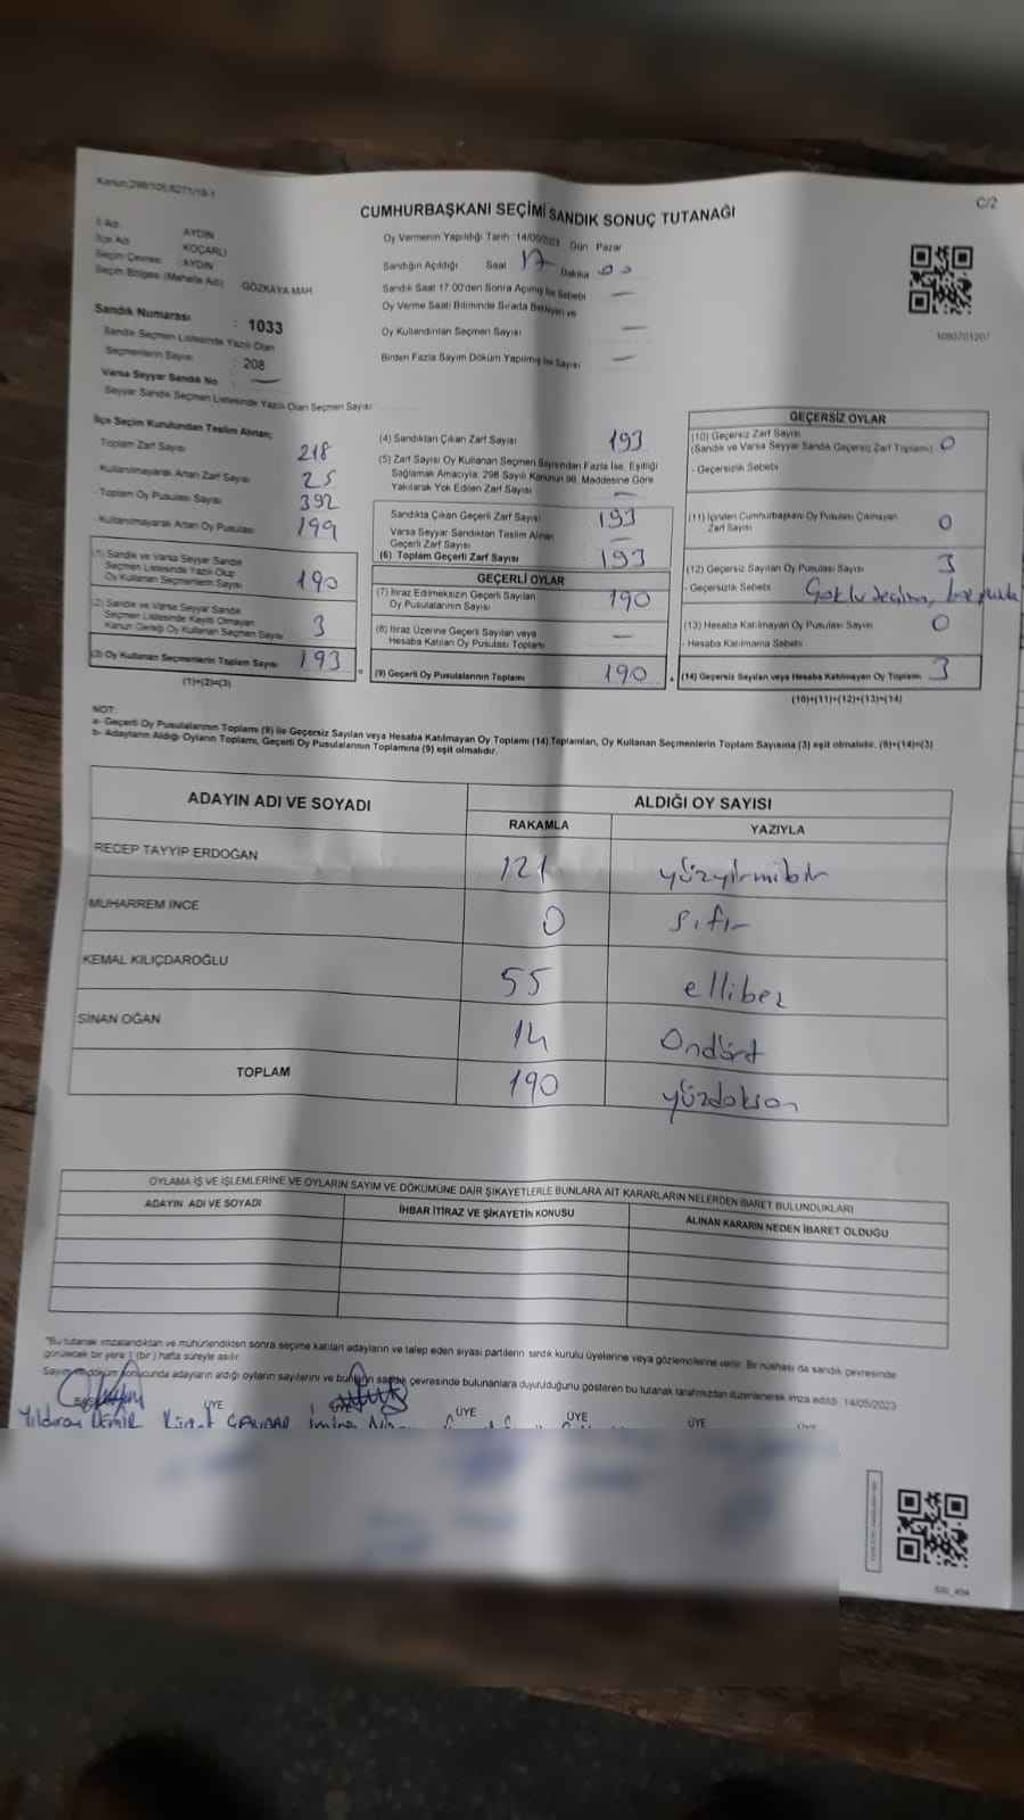 Kanun:298/105,6271/19-1
C/2
CUMHURBAŞKANI SEÇİMİ SANDIK SONUÇ TUTANAĞI
İl Adı AYDIN
İlçe Adı KOÇARLI
Seçim Çevresi AYDIN
Seçim Bölgesi (Mahalle Adı) GÖZKAYA MAH
Sandık Numarası : 1033
Sandık Seçmen Listesinde Yazılı Olan
Seçmenlerin Sayısı : 208
Varsa Seyyar Sandık No —
Seyyar Sandık Seçmen Listesinde Yazılı Olan Seçmen Sayısı
Oy Vermenin Yapıldığı Tarih :14/05/2023 Gün Pazar
Sandığın Açıldığı Saat 17 Dakika 00
Sandık Saat 17:00'den Sonra Açılmış İse Sebebi —
Oy Verme Saati Bitiminde Sırada Bekleyen ve
Oy Kullandırılan Seçmen Sayısı —
Birden Fazla Sayım Döküm Yapılmış İse Sayısı —
İlçe Seçim Kurulundan Teslim Alınan;
Toplam Zarf Sayısı 218
Kullanılmayarak Artan Zarf Sayısı 25
Toplam Oy Pusulası Sayısı 392
Kullanılmayarak Artan Oy Pusulası 199
(1) Sandık ve Varsa Seyyar Sandık
Seçmen Listesinde Yazılı Olup
Oy Kullanan Seçmenlerin Sayısı 190
(2) Sandık ve Varsa Seyyar Sandık
Seçmen Listesinde Kayıtlı Olmayan
Kanun Gereği Oy Kullanan Seçmen Sayısı 3
(3) Oy Kullanan Seçmenlerin Toplam Sayısı 193
(1)+(2)=(3)
(4) Sandıktan Çıkan Zarf Sayısı 193
(5) Zarf Sayısı Oy Kullanan Seçmen Sayısından Fazla İse, Eşitliği
Sağlamak Amacıyla, 298 Sayılı Kanunun 98. Maddesine Göre
Yakılarak Yok Edilen Zarf Sayısı —
Sandıkta Çıkan Geçerli Zarf Sayısı 193
Varsa Seyyar Sandıktan Teslim Alınan
Geçerli Zarf Sayısı —
(6) Toplam Geçerli Zarf Sayısı 193
GEÇERLİ OYLAR
(7) İtiraz Edilmeksizin Geçerli Sayılan
Oy Pusulalarının Sayısı 190
(8) İtiraz Üzerine Geçerli Sayılan veya
Hesaba Katılan Oy Pusulası Toplamı —
(9) Geçerli Oy Pusulalarının Toplamı 190
GEÇERSİZ OYLAR
(10) Geçersiz Zarf Sayısı
(Sandık ve Varsa Seyyar Sandık Geçersiz Zarf Toplamı) 0
- Geçersizlik Sebebi
(11) İçinden Cumhurbaşkanı Oy Pusulası Çıkmayan
Zarf Sayısı 0
(12) Geçersiz Sayılan Oy Pusulası Sayısı 3
- Geçersizlik Sebebi
(13) Hesaba Katılmayan Oy Pusulası Sayısı 0
- Hesaba Katılmama Sebebi
(14) Geçersiz Sayılan veya Hesaba Katılmayan Oy Toplamı 3
(10)+(11)+(12)+(13)=(14)
NOT:
a- Geçerli Oy Pusulalarının Toplamı (9) ile Geçersiz Sayılan veya Hesaba Katılmayan Oy Toplamı (14) Toplamları, Oy Kullanan Seçmenlerin Toplam Sayısına (3) eşit olmalıdır. (9)+(14)=(3)
b- Adayların Aldığı Oyların Toplamı, Geçerli Oy Pusulalarının Toplamına (9) eşit olmalıdır.
ADAYIN ADI VE SOYADI ALDIĞI OY SAYISI
RAKAMLA YAZIYLA
RECEP TAYYİP ERDOĞAN 121 yüzyirmibir
MUHARREM İNCE 0 sıfır
KEMAL KILIÇDAROĞLU 55 ellibeş
SİNAN OĞAN 14 Ondört
TOPLAM 190 yüzdoksan
OYLAMA İŞ VE İŞLEMLERİNE VE OYLARIN SAYIM VE DÖKÜMÜNE DAİR ŞİKAYETLERLE BUNLARA AİT KARARLARIN NELERDEN İBARET BULUNDUKLARI
ADAYIN ADI VE SOYADI İHBAR İTİRAZ VE ŞİKAYETİN KONUSU ALINAN KARARIN NEDEN İBARET OLDUĞU
*Bu tutanak imzalandıktan ve mühürlendikten sonra seçime katılan adayların ve talep eden siyasi partilerin sandık kurulu üyelerine veya gözlemcilerine verilir. Bir nüshası da sandık çevresinde
görülecek bir yere 1 (bir) hafta süreyle asılır.
Sayım döküm sonucunda adayların aldığı oyların sayılarını ve bunların sandık çevresinde bulunanlara duyurulduğunu gösteren bu tutanak tarafımızdan düzenlenerek imza edildi. 14/05/2023
ÜYE ÜYE ÜYE ÜYE
Yıldıray DEMİR